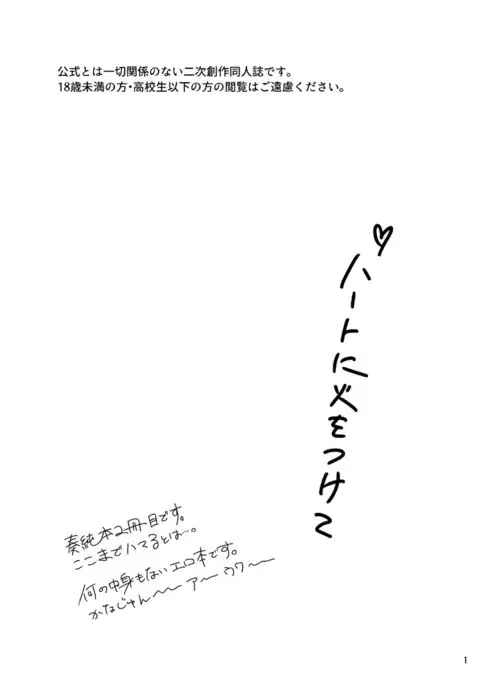 公式とは一切関係のない二次創作同人誌です。
18歳未満の方・高校生以下の方の閲覧はご遠慮ください。
♡ハートに火をつけて
奏純本2冊目です。
ここまでハマるとは…。
何の中身もないエロ本です。
かなじゅん〜〜アーウワ〜〜
1